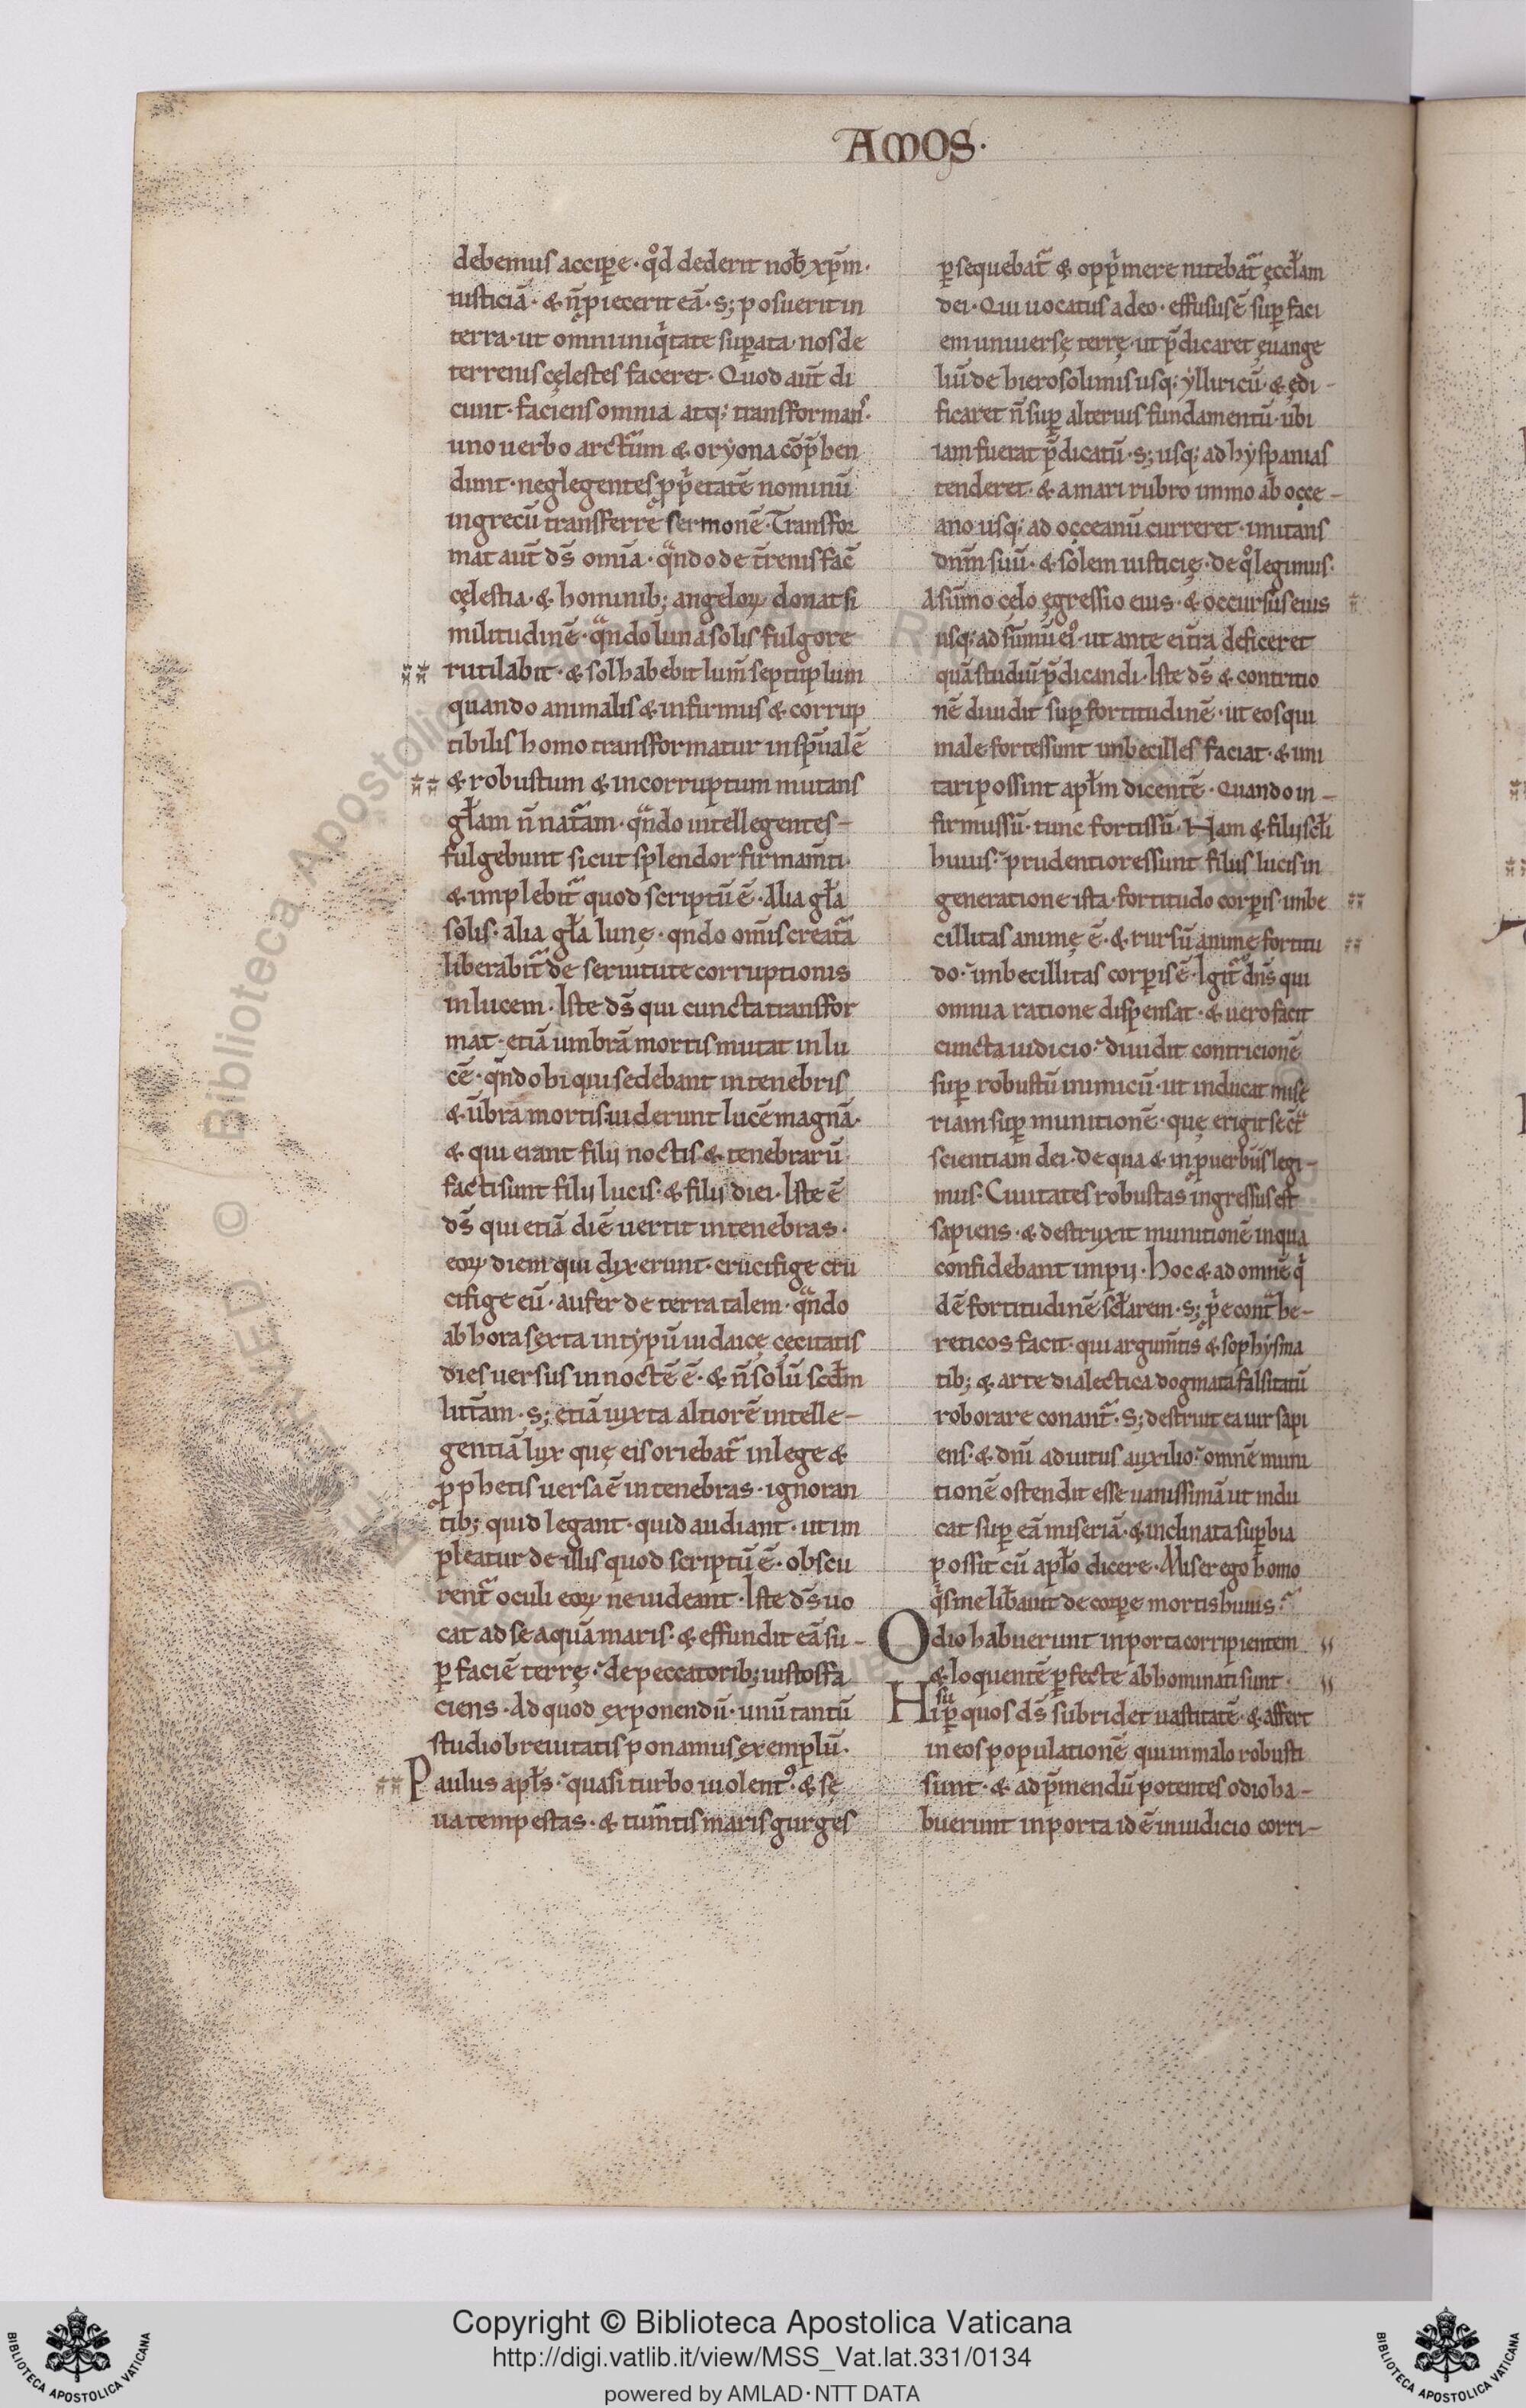 AMOS·
debemus accip̲e· qͦd dederit nob̄ xp̄m·
iusticiā· & n̄ ꝓiecerit eā· s; posuerit in
terra· ut omni iniqͥtate sup̲ata· nos de
terrenis cęlestes faceret· Quod aut̄ di
cunt· faciens omnia atq; transformans·
uno uerbo arctūm & oryona cōp̄hen
dunt· neglegentes ꝓpͥetatē nominū
in grecū transferre sermonē· Transfor
mat aut̄ ds̄ omīa· qͣndo de t̄renis fac̄
cęlestia· & hominib; angeloꝝ donat si
militudinē· qͣndo luna solis fulgore
rutilabit· & sol habebit lum̄ septuplum
quando animalis & infirmus & corrup
tibilis homo transformatur in sp̄ualē
& robustum & incorruptum mutans
gl̄am n̄ nat̄am· qͣndo intellegentes-
fulgebunt sicut splendor firmam̄ti·
& implebit̄ quod scriptū ē· Alia gl̄a
solis· alia gl̄a lunę· qn̄do om̄is creat̄a
liberabit̄ de seruitute corruptionis
in lucem· Iste ds̄ qui cuncta transfor
mat· etiā umbrā mortis mutat in lu
cē· qn̄do hi qui sedebant in tenebris
& ūbra mortis· uiderunt lucē magnā·
& qui erant filii noctis & tenebrarū
facti sunt filii lucis· & filii diei· Iste ē
ds̄ qui etiā diē uertit in tenebras·
eoꝝ diem qui dixerunt· crucifige cru
cifige eū· aufer de terra talem· qͣndo
ab hora sexta in typū iudaicę cęcitatis
dies uersus in noctē ē· & n̄ solū scd̄m
litt̄am· s; etiā iuxta altiorē intelle-
gentiā lux quę eis oriebat̄ in lege &
ꝓphetis uersa ē in tenebras· ignoran
tib; quid legant· quid audiant· ut im
pleatur de illis quod scriptū ē· obscu
rent̄ oculi eoꝝ ne uideant· Iste ds̄ uo
cat ad se aquā maris· & effundit eā su-
p̲ faciē terrę· de peccatorib; iustos fa
ciens· Ad quod exponendū· unū tantū
studio breuitatis ponamus exemplū·
Paulus apl̄s· quasi turbo uiolentꝰ· & sę
ua tempestas· & tum̄tis maris gurges
p̲sequebat̄ & oppͥmere nitebat̄ ęccl̄am
dei· Qui uocatus a deo· effusus ē sup̲ faci
em uniuersę terrę· ut p̄dicaret euange
liū de hierosolimis usq; ylliricū· & ędi-
ficaret n̄ sup̲ alterius fundamentū· ubi
iam fuerat p̄dicatū· s; usq; ad hyspanias
tenderet· & a mari rubro immo ab occe-
ano usq; ad occeanū curreret· imitans
dn̄m suū· & solem iusticię· de qͦ legimus·
A sūmo celo ęgressio eius· & occursus eius
usq; ad sūmū eiꝰ· ut ante ei t̄ra deficeret
quā studiū p̄dicandi· Iste ds̄ & contritio
nē diuidit sup̲ fortitudinē· ut eos qui
male fortes sunt imbecilles faciat· & imi
tari possint apl̄m dicentē· Quando in-
firmus sū· tunc fortis sū· Nam & filii scl̄i
huius· prudentiores sunt filiis lucis in
generatione ista· fortitudo corp̲is· imbe
cillitas animę ē· & rursū animę fortitu
do· imbecillitas corp̲is ē· Igit̄ dn̄s qui
omnia ratione dispensat· & uero facit
cuncta iudicio· diuidit contricionē
sup̲ robustū inimicū· ut inducat mise
riam sup̲ munitionē· quę erigit se ct̄ͣ
scientiam dei· de qua & in ꝓuerbiis legi-
mus· Ciuitates robustas ingressus est
sapiens· & destruxit munitionē in qua
confidebant impii· Hoc & ad omnē qͥ
dē fortitudinē scl̄arem· s; pͥe cont̄ he-
reticos facit· qui argum̄tis & sophysma
tib; & arte dialectica dogmata falsitatū
roborare conant̄· S; destruit ea uir sapi
ens· & dn̄i adiutus auxilio· omnē muni
tionē ostendit esse uanissimā ut indu
cat sup̲ eā miseriā· & inclinata sup̲bia
possit cū apl̄o dicere· Miser ego homo
qͥs me lib̄auit de corp̲e mortis huius·
Odio habuerunt in porta corripientem
& loquentē p̲fecte abhominati sunt·
Hi sup̲ quos ds̄ subridet uastitatē· & affert
in eos populationē qui in malo robusti
sunt· & ad p̄mendū potentes odio ha-
buerunt in porta id ē in iudicio corri-
Copyright © Biblioteca Apostolica Vaticana
http://digi.vatlib.it/view/MSS_Vat.lat.331/0134
powered by AMLAD·NTT DATA
BIBLIOTECA APOSTOLICA VATICANA
BIBLIOTECA APOSTOLICA VATICANA